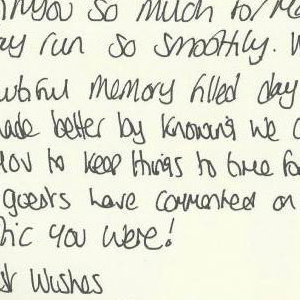 you so much for
run so smoothly.
memory filled day
better by knowing we
you to keep things to time
guests have commented on
you were!
Wishes